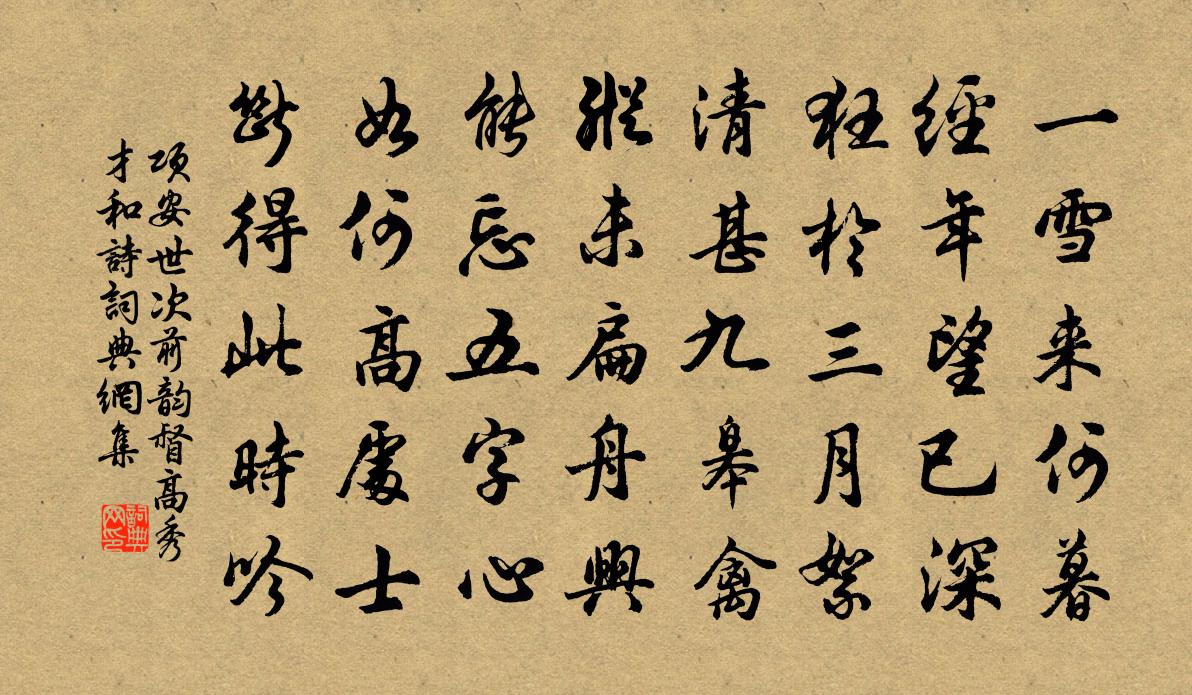 一雪来何暮
經年望已深
狂於三月絮
清甚九皋禽
縱未扁舟興
能忘五字心
如何高處士
斷得此時吟
項安世次前韵督高秀
才和詩詞典網集
詞典
网印